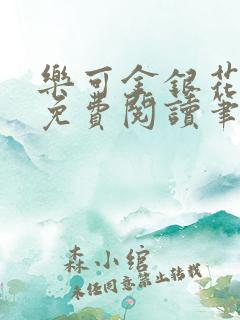 樂可金銀花
免費閱讀筆
森小綰
未經同意禁止轉載